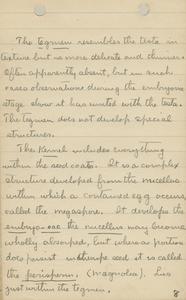 The tegmen resembles the testa in
texture but is more delicate and thinner.
Often apparently absent, but in such
cases observations during the embryonic
stage show it has united with the testa.
The tegmen does not develop special
structures.
The Kernel includes everything
within the seed coats. It is a complex
structure developed from the nucellus
within which a contained egg occurs,
called the megaspore. It develops the
embryo-sac the nucellus may become
wholly absorbed, but where a portion
does persist in the ripe seed it is called
the perisperm. (Magnolia). Lies
just within the tegmen.
8